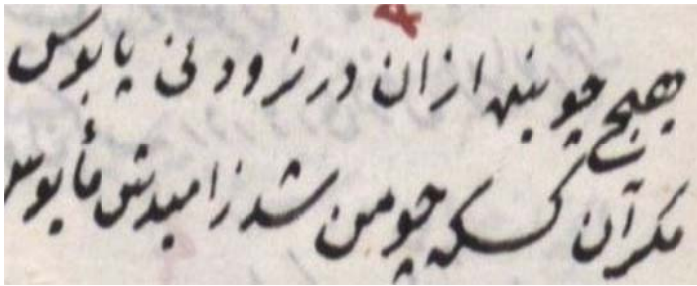 هیچ جوینده ازان در نرود بی پابوس
مگر آن کسکه چو من شد ز امیدش مأیوس